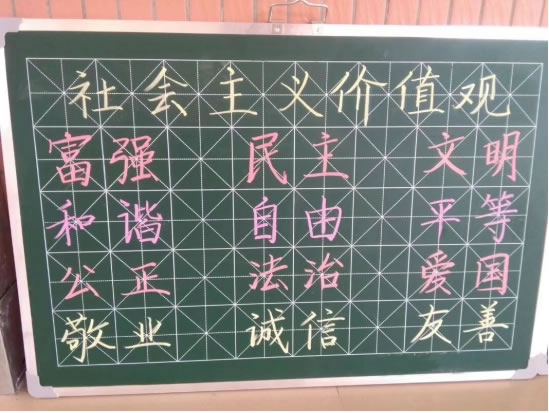 社会主义价值观
富强 民主 文明
和谐 自由 平等
公正 法治 爱国
敬业 诚信 友善